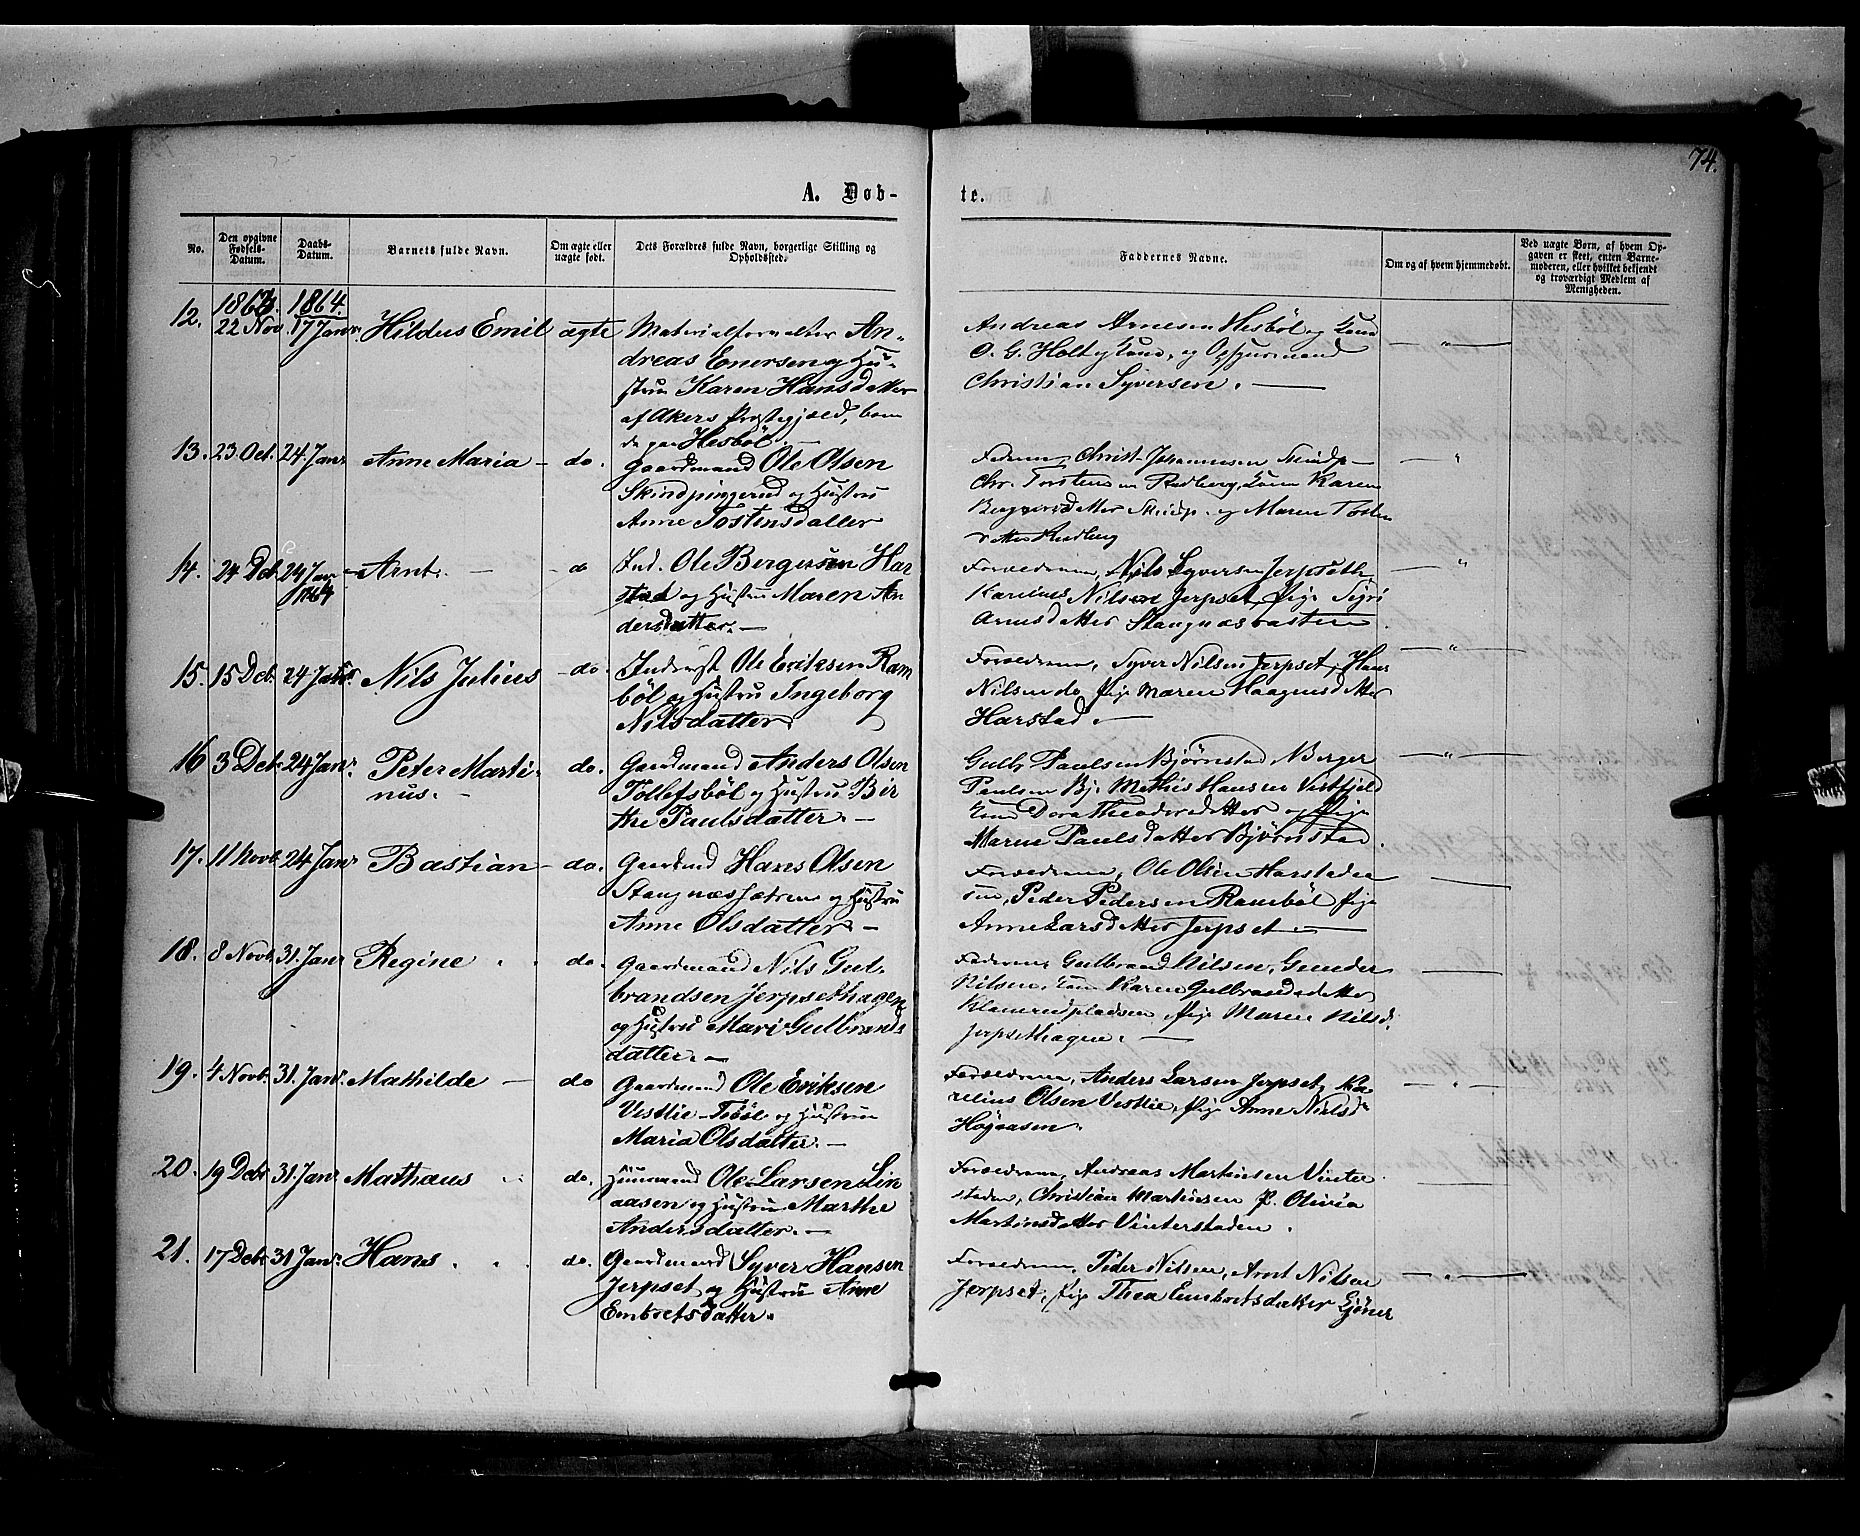 74.
A. Døb-
te.
No.
Den opgivne Fødsels-Datum.
Daabs-Datum.
Barnets fulde Navn.
Om ægte eller uægte født.
Dets Forældres fulde Navn, borgerlige Stilling og Opholdssted.
Faddernes Navne.
Om og af hvem hjemmedøbt.
Ved uægte Børn, af hvem Opgaven er skeet, enten Barnemoderen, eller hvilket bekjendt og troværdigt Medlem af Menigheden.
1863. 1864.
12. 22 Nov. 17 Janr. Hildus Emil ægte Materialforvalter An-
dreas Enersen og Hu-
stru Karen Hansdatter
af Akers Præstegjæld, boen
de paa Hesbøl.
Andreas Arnesen Hesbøl og Kone
O. G. Holt og Kone, og Opsynsmand
Christian Syversen. —
— " —
13. 23 Oct. 24 Janr. Anne Maria — do. Gaardmand Ole Olsen
Skindpungerud og Hustru
Anne Tostensdatter
Faderen, Christ. Johannesen Skindp—
Chr. Torstensen Rudberg, Kone Karen
Skindp. og Maren Tosten
datter Rudberg
— "
14. 24 Deb. 24 Janr 1864 Arnt. — — do Ind. Ole Bergersen Har-
stad og Hustru Maren An
dersdatter. —
Forældrene, Nils Syversen Jerpseth,
Karelius Nilsen Jerpset, Pige Sigri
Arnesdatter Stangnæs
— "
15. 15 Deb. 24 Janr. Nils Julius — do. Inderst Ole Eriksen Ram
bøl og Hustru Ingeborg
Nilsdatter.
Forældrene, Syver Nilsen Jerpset, Hans
Nilsen do Pige Maren Haagensdatter
Harstad. —
— " —
16 3 Deb. 24 Janr. Peter Marti-
nus. — do. Gaardmand Anders Olsen
Tollefsbøl og Hustru Bir
the Paulsdatter. —
Gulbr. Paulsen Bjørnstad, Berger
Paulsen Bj. Mathis Hansen Vestfjeld
Kone Dora Theodorsdatter og Pige
Maren Paulsdatter Bjørnstad.
— " —
17. 11 Novb. 24 Janr Bastian — do. Gaardmd Hans Olsen
Stangnæssætren og Hustru
Anne Olsdatter —
Forældrene, Ole Olsen Harstadei
en, Peder Pedersen Rambøl Pige
Anne Larsdatter Jerpset. —
18. 8 Novb. 31. Janr Regine do. Gaardmand Nils Gul-
brandsen Jerpsethagen
og Hustru Mari Gulbrands
datter. —
Faderen, Gulbrand Nilsen, Gunder
Nilsen, Kone Karen Gulbrandsdatter
Pige Maren Nilsd.
Jerpsethagen. —
19. 4 Novb. 31. Janr. Mathilde — do Gaardmand Ole Eriksen
Vestlie og Hustru
Maria Olsdatter. —
Forældrene, Anders Larsen Jerpset, Ka-
relius Olsen Vestlie, Pige Anne Nielsd.
Højaasen.
— " —
20. 19 Debr 31 Janr Mathæus do. Huusmand Ole Larsen Lin
aasen og Hustru Marthe
Andersdatter. —
Forældrene, Andreas Martinsen Vinter
staden, Christian Martinsen P. Olivia
Martinsdatter Vinterstaden.
21. 17 Debr 31 Janr. Hans do. Gaardmand Syver Hansen
Jerpset og Hustru Anne
Embretsdatter.
Forældrene, Peder Nilsen, Arnt Nilsen
Jerpset, Pige Thea Embretsdatter
— " —